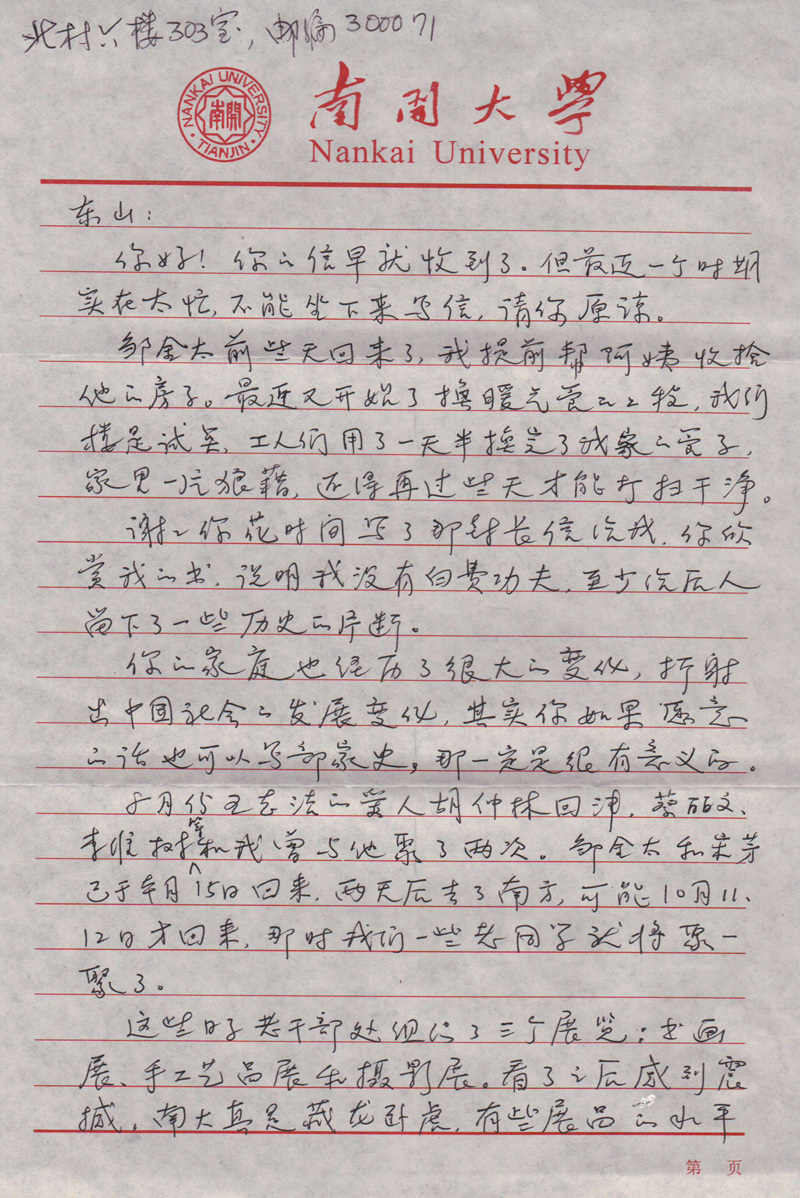 北村六楼303室，邮编300071
NANKAI UNIVERSITY
南開
TIANJIN
南开大学
Nankai University
东山：
你好！你的信早就收到了。但最近一个时期
实在太忙，不能坐下来写信，请你原谅。
邹金太前些天回来了，我提前帮阿姨收拾
他的房子。最近又开始了换暖气管的工程，我们
楼是试点，工人们用了一天半换完了我家的管子，
家里一片狼藉，还得再过些天才能打扫干净。
谢谢你花时间写了那封长信给我，你欣
赏我的书，说明我没有白费功夫，至少给后人
留下了一些历史的片断。
你的家庭也经历了很大的变化，折射
出中国社会的发展变化，其实你如果愿意
的话也可以写部家史，那一定是很有意义的。
月份王志法的爱人胡仲林回津，蔡丽文、
李维等和我曾与他聚了两次。邹金太和
已于月15日回来，两天后去了南方，可能10月11、
12日才回来，那时我们一些老同学就将聚一
聚了。
这些日子老干部处组织了三个展览：书画
展、手工艺品展和摄影展。看了之后感到震
撼，南大真是藏龙卧虎，有些展品的水平
第 页